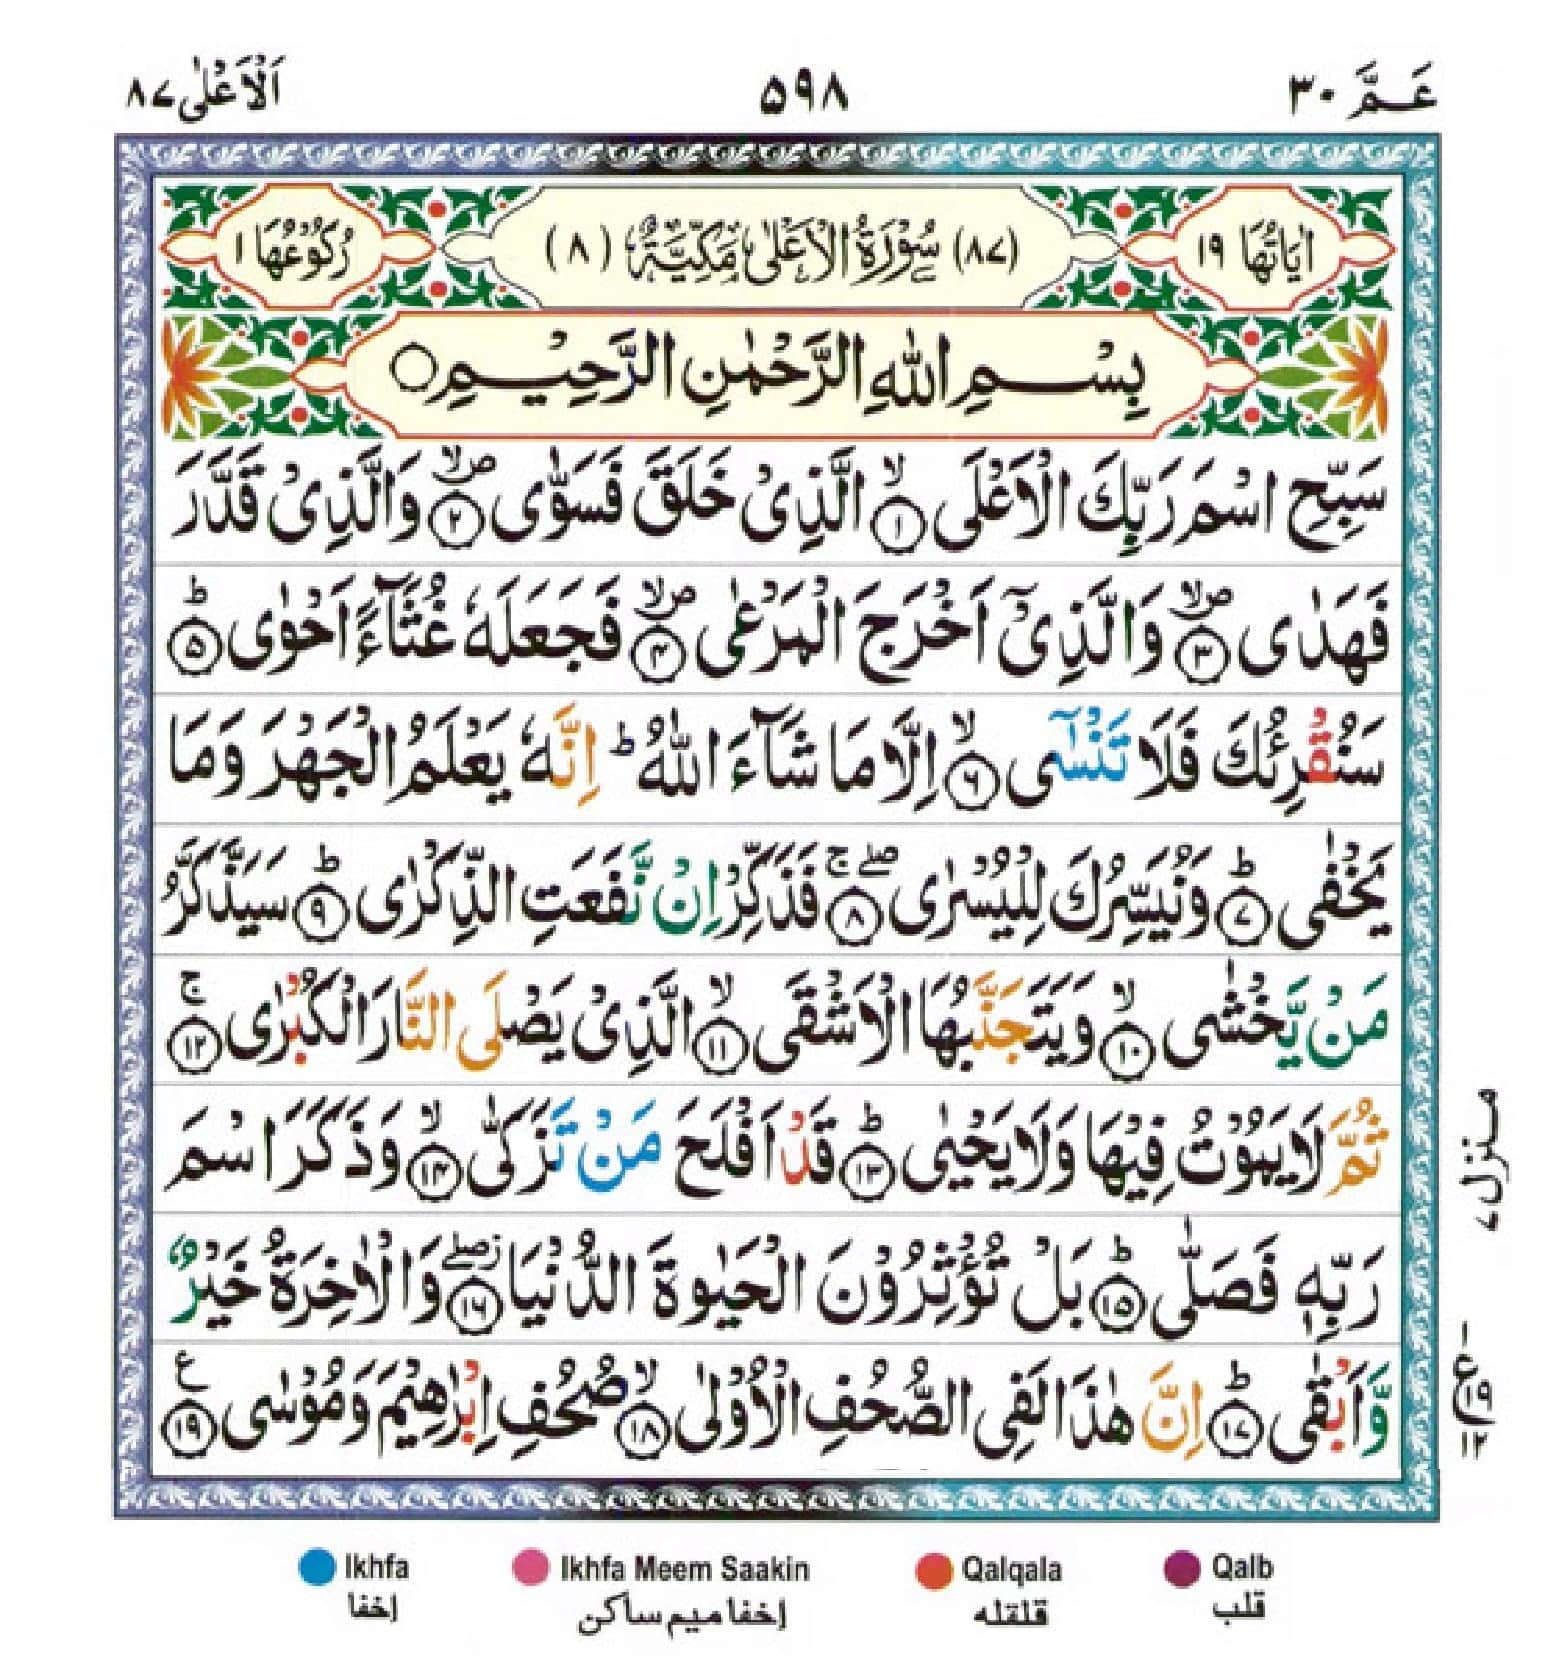 عَمَّ ٣٠
٥٩٨
اَلْاَعْلٰى ٨٧
اٰيَاتُهَا ١٩
(٨٧) سُوْرَةُ الْاَعْلٰى مَكِّيَّةٌ (٨)
رُكُوْعُهَا ١
بِسْمِ اللّٰهِ الرَّحْمٰنِ الرَّحِيْمِ ○
سَبِّحِ اسْمَ رَبِّكَ الْاَعْلَى ۙ﴿١﴾ الَّذِىْ خَلَقَ فَسَوّٰى ۪ۙ﴿٢﴾ وَالَّذِىْ قَدَّرَ
فَهَدٰى ۪ۙ﴿٣﴾ وَالَّذِىْۤ اَخْرَجَ الْمَرْعٰى ۪ۙ﴿٤﴾ فَجَعَلَهٗ غُثَآءً اَحْوٰى ؕ﴿٥﴾
سَنُقْرِئُكَ فَلَا تَنْسٰٓى ۙ﴿٦﴾ اِلَّا مَا شَآءَ اللّٰهُ ؕ اِنَّهٗ يَعْلَمُ الْجَهْرَ وَمَا
يَخْفٰى ؕ﴿٧﴾ وَنُيَسِّرُكَ لِلْيُسْرٰى ۖۚ﴿٨﴾ فَذَكِّرْ اِنْ نَّفَعَتِ الذِّكْرٰى ؕ﴿٩﴾ سَيَذَّكَّرُ
مَنْ يَّخْشٰى ۙ﴿١٠﴾ وَيَتَجَنَّبُهَا الْاَشْقَى ۙ﴿١١﴾ الَّذِىْ يَصْلَى النَّارَ الْكُبْرٰى ۚ﴿١٢﴾
ثُمَّ لَا يَمُوْتُ فِيْهَا وَلَا يَحْيٰى ؕ﴿١٣﴾ قَدْ اَفْلَحَ مَنْ تَزَكّٰى ۙ﴿١٤﴾ وَذَكَرَ اسْمَ
رَبِّهٖ فَصَلّٰى ؕ﴿١٥﴾ بَلْ تُؤْثِرُوْنَ الْحَيٰوةَ الدُّنْيَا ۖز﴿١٦﴾ وَالْاٰخِرَةُ خَيْرٌ
وَّاَبْقٰى ؕ﴿١٧﴾ اِنَّ هٰذَا لَفِى الصُّحُفِ الْاُوْلٰى ۙ﴿١٨﴾ صُحُفِ اِبْرٰهِيْمَ وَمُوْسٰى ع﴿١٩﴾
منزل ٧
١
ع ١٩
١٢
Ikhfa
إخفا
Ikhfa Meem Saakin
إخفا ميم ساكن
Qalqala
قلقله
Qalb
قلب